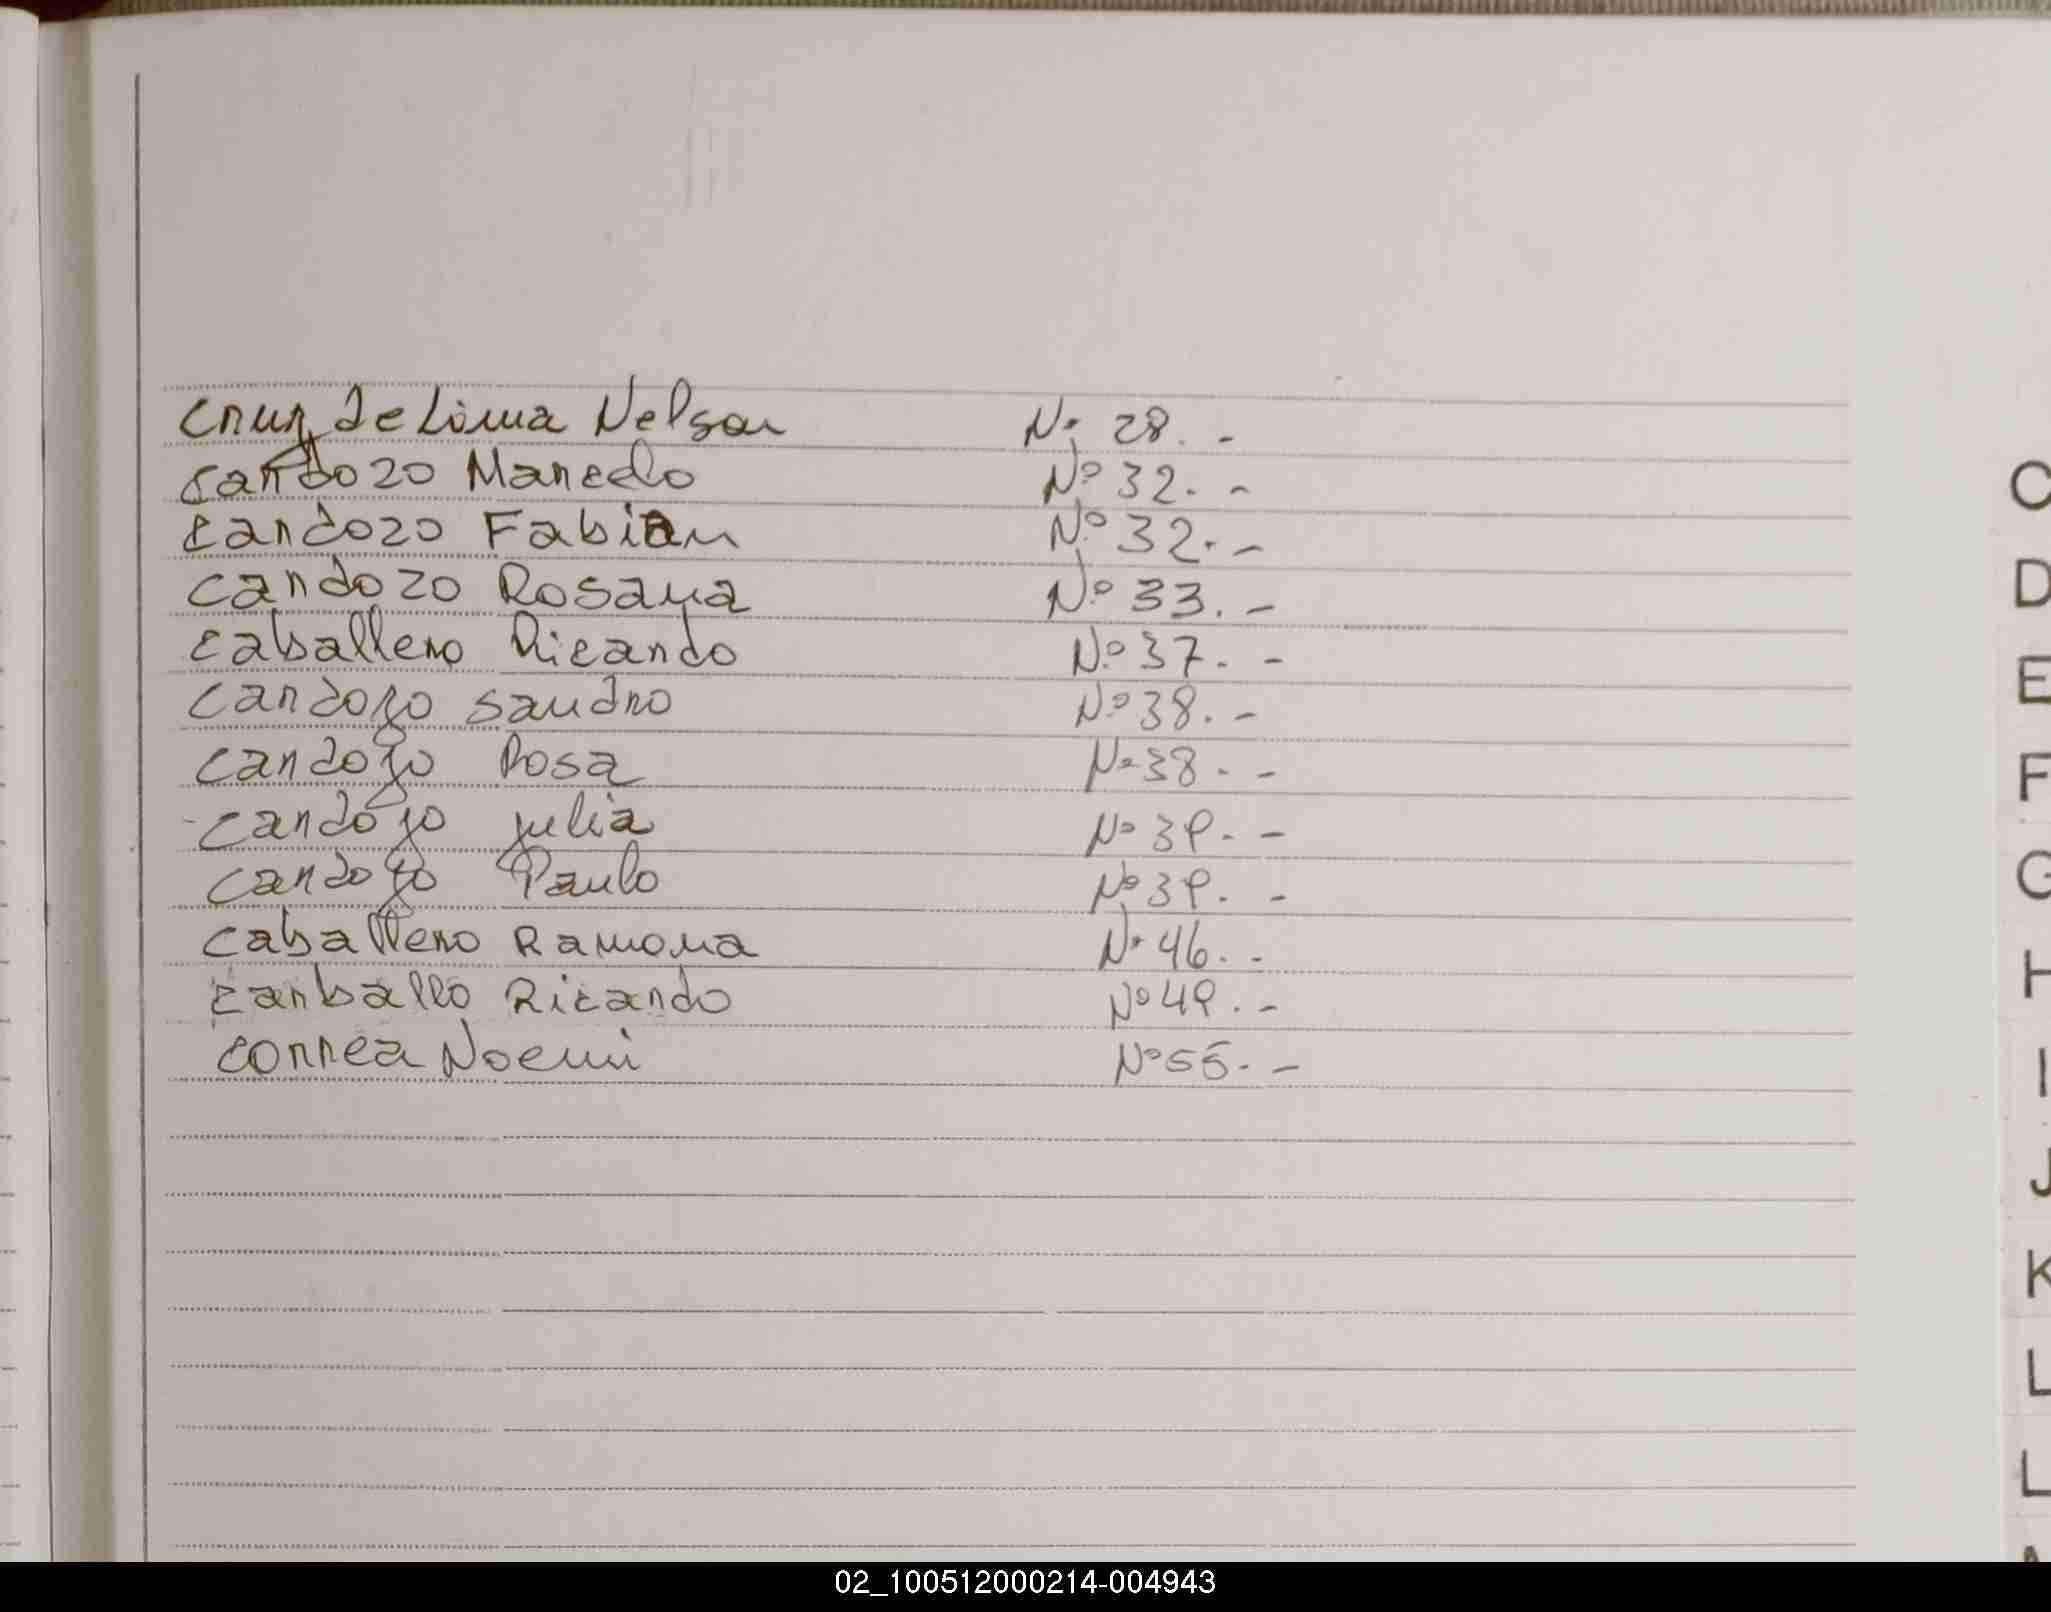 Cruz de Lima Nelson Nº 28.-
Cardozo Marcelo Nº 32.-
Cardozo Fabian Nº 32.-
Cardozo Rosana Nº 33.-
Caballero Ricardo Nº 37.-
Cardozo Sandro Nº 38.-
Cardozo Rosa Nº 38.-
Cardozo Julia Nº 39.-
Cardozo Paulo Nº 39.-
Caballero Ramona Nº 46.-
Carballo Ricardo Nº 49.-
Correa Noemi Nº 55.-
C
D
E
F
G
H
I
J
K
L
L
02_100512000214-004943